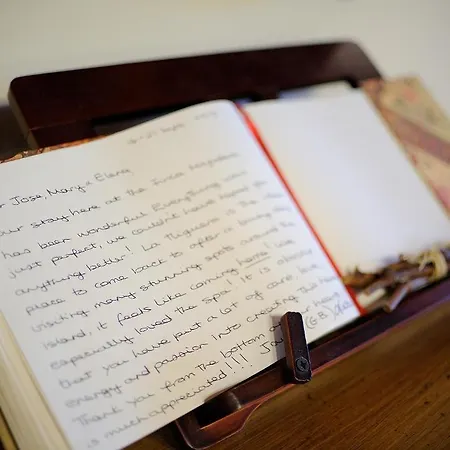 Jose, Mary + Elena,
our stay here at the Finca
has been wonderful. Everything was
just perfect, we couldn't have hoped for
anything better! La Higuera is the ideal
place to come back to after a busy day
visiting many stunning spots around the
Island, it feels like coming home! We
especially loved the spa! It is obvious
that you have put a lot of care, love,
energy and passion into creating this
Thank you from the bottom of our heart
is much appreciated!!! (GB)